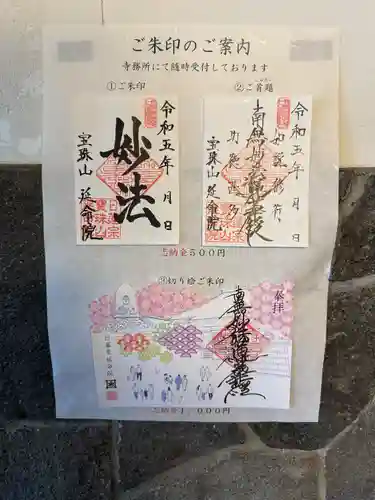 ご朱印のご案内
寺務所にて随時受付しております
①ご朱印
令和五年 月 日
妙法
宝珠山 延命院
②ご首題
令和五年 月 日
如説修行
南無妙法蓮華経
功徳甚多
宝珠山 延命院
志納金500円
③切り絵ご朱印
奉拝
南無妙法蓮華経